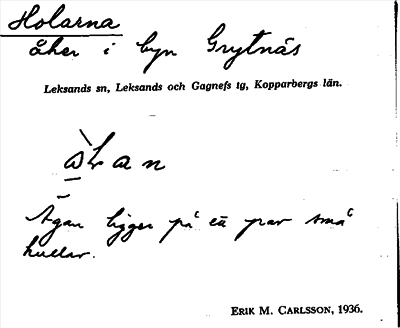 Holarna
åker i byn Grytnäs
Leksands sn, Leksands och Gagnefs tg, Kopparbergs län.
Ägan ligger på ett par små
kullar.
ERIK M. CARLSSON, 1936.